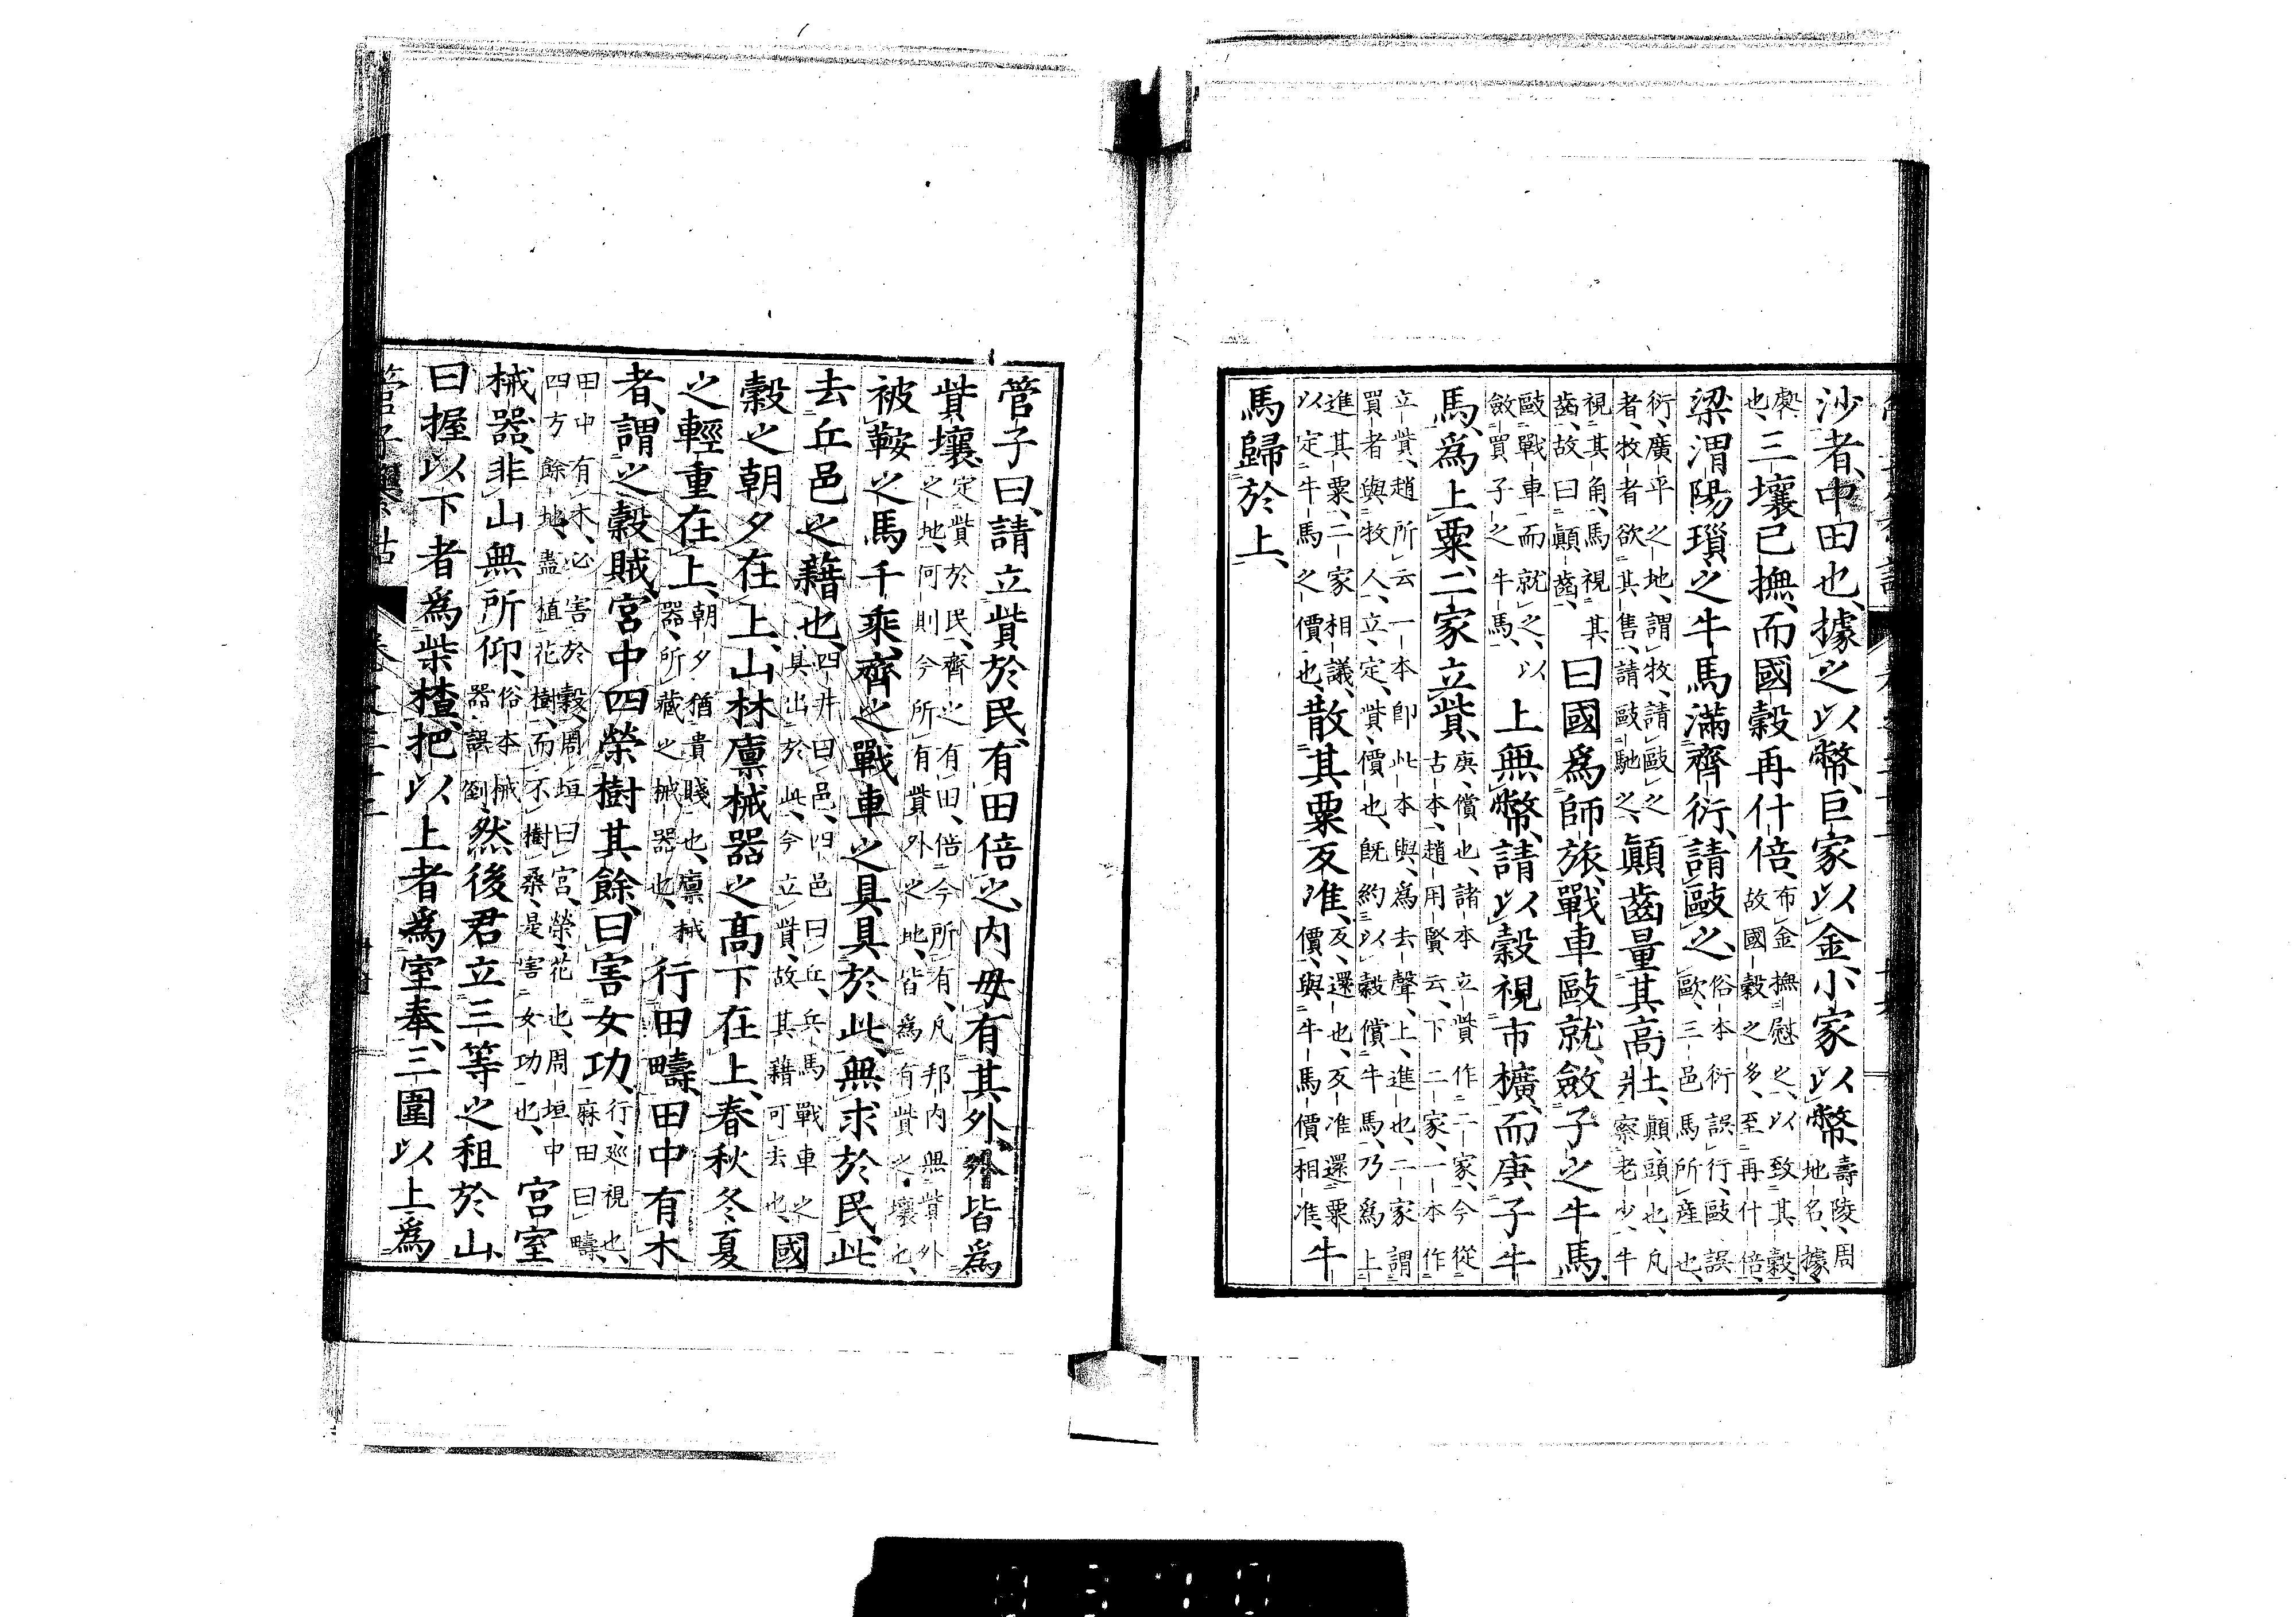 沙者、中田也、據之以幣、巨家以金、小家以幣、壽陵、周地名、據、
處也、三壤已撫、而國穀再什倍、布金撫慰之、以致其穀、故國穀之多、至再什倍、
梁渭陽瑣之牛馬滿齊衍、請敺之、俗本衍誤行、敺誤歐、三邑馬所產也、
衍、廣平之地、謂牧、請敺之者、牧者欲其售、請敺馳之、顚齒量其高壯、顚、頭也、凡察老少、牛
視其角、馬視其齒、故曰顚齒、曰國爲師旅、戰車敺就、斂子之牛馬、
敺戰車而就之、以斂買子之牛馬、上無幣、請以穀視市櫎、而庚子牛
馬、爲上粟二家立貲、庚、償也、諸本立貲作二家、今從古本、趙用賢云、下二家、一本作
立貲、趙所云一本卽此本與、爲去聲、上、進也、二家謂買者與牧人、立、定、貲、價也、旣約以穀償牛馬、乃爲上
進其粟、二家相議、以定牛馬之價也、散其粟反准、反、還也、反准還粟價、與牛馬價相准、牛
馬歸於上、
管子曰、請立貲於民、有田倍之、内毋有其外、外皆爲
貲壤、定貲於民、齊之有田、倍今所有、凡邦内無貲外之地、何則今所有貲外之地、皆爲有貲之壤也、
被鞍之馬千乘、齊之戰車之具、具於此、無求於民、此
去丘邑之籍也、四井曰邑、四邑曰丘、兵馬戰車之具出於此、今立貲、故其籍可去也、國
穀之朝夕在上、山林廩械器之高下在上、春秋冬夏
之輕重在上、朝夕猶貴賤也、廩械器、所藏之械器也、行田疇、田中有木
者、謂之穀賊、宮中四榮樹其餘、曰害女功、行、巡視也、麻田曰疇、
田中有木、必害於穀、周垣曰宮、榮、花也、周垣中四方餘地、盡植花樹、而不樹桑、是害女功也、宮室
械器、非山無所仰、俗本械器誤劉、然後君立三等之租於山、
曰握以下者爲柴楂、把以上者爲室奉、三圍以上爲